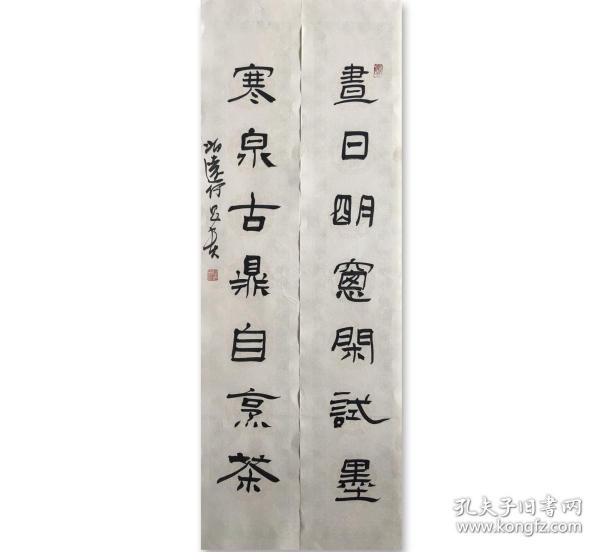 晝日明窻閑試墨
寒泉古鼎自烹茶
孔夫子旧书网
www.kongfz.com